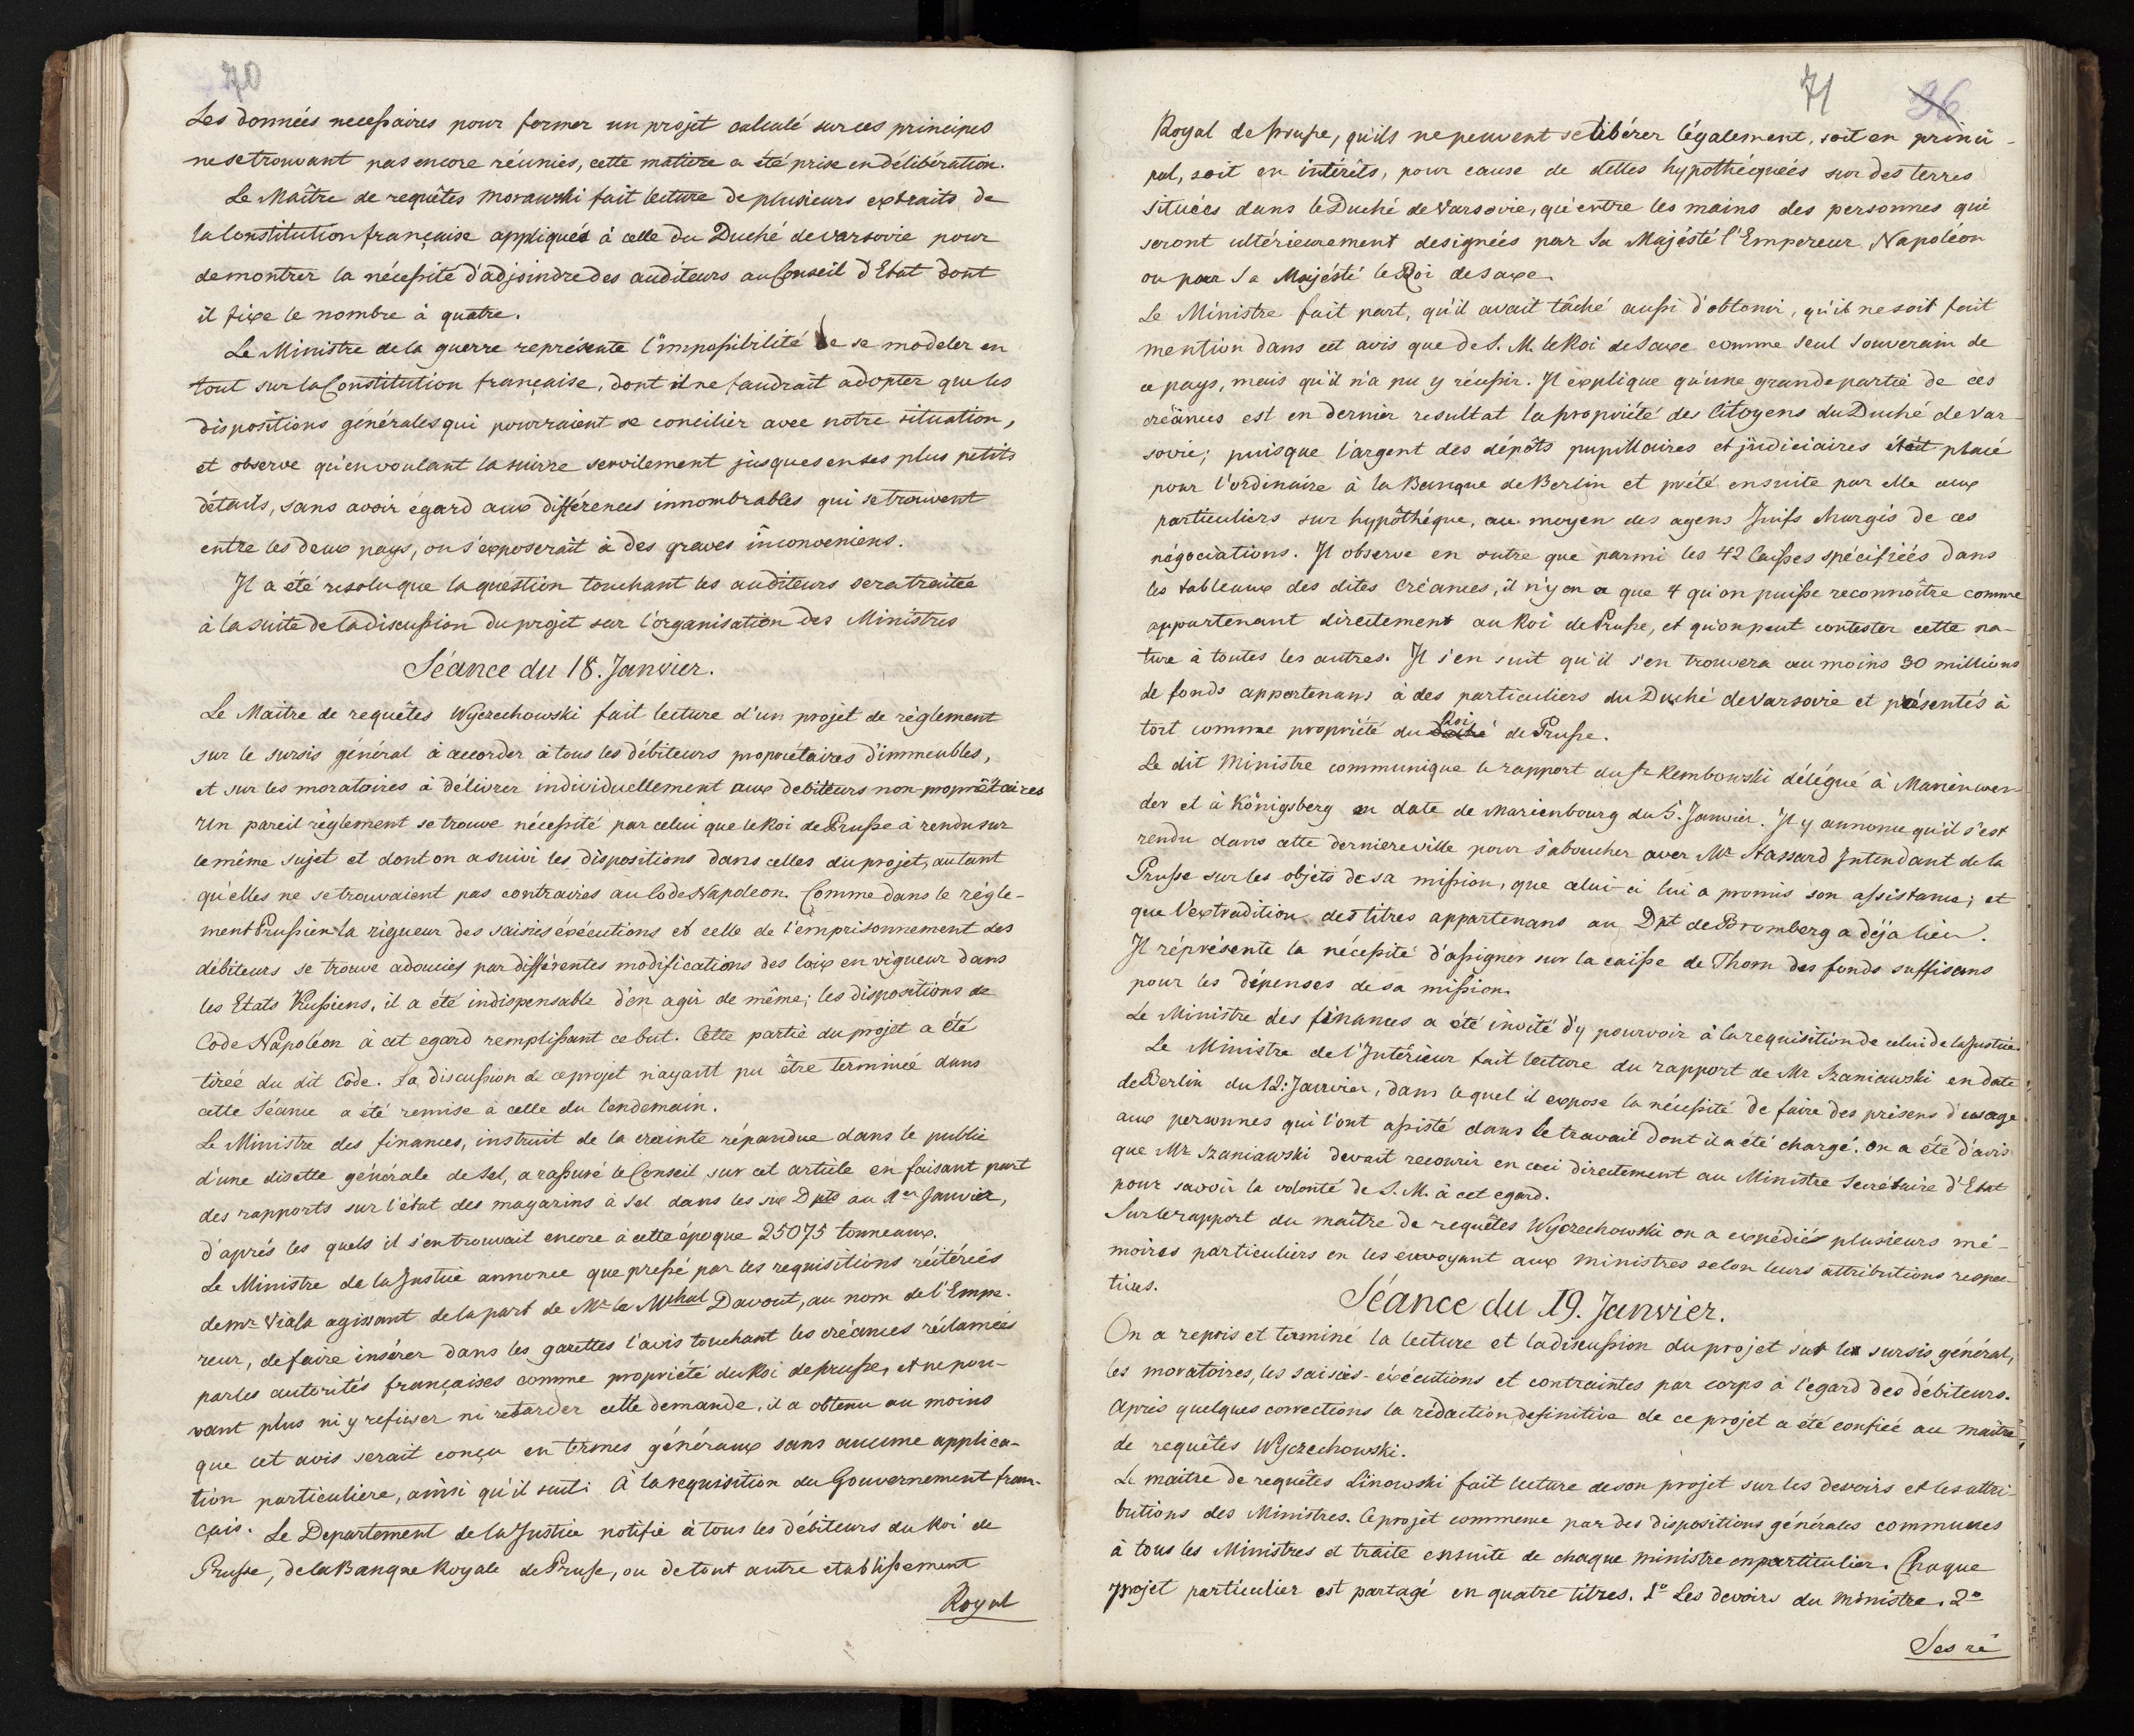 70
Les données necessaires pour former un projet calculé sur ces principes
ne se trouvant pas encore réunies, cette matiere a été prise en délibération.
Le Maître de requêtes Morawski fait lecture de plusieurs extraits de
la Constitution française appliqués à celle du Duché de Varsovie pour
demontrer la nécessité d'adjoindre des auditeurs au Conseil d'Etat dont
il fixe le nombre à quatre.
Le Ministre de la guerre représente l'impossibilité de se modeler en
tout sur la Constitution française, dont il ne faudrait adopter que les
dispositions générales qui pourraient se concilier avec notre situation,
et observe qu'en voulant la suivre servilement jusques en ses plus petits
détails, sans avoir égard aux différences innombrables qui se trouvent
entre les deux pays, on s'exposerait à des graves inconveniens.
Il a été resolu que la question touchant les auditeurs sera traitée
à la suite de la discussion du projet sur l'organisation des Ministres
Séance du 18. Janvier.
Le Maitre de requêtes Wyczechowski fait lecture d'un projet de règlement
sur le sursis général à accorder à tous les débiteurs propriétaires d'immeubles,
et sur les moratoires à délivrer individuellement aux debiteurs non-propriétaires
Un pareil règlement se trouve nécessité par celui que le Roi de Prusse à rendu sur
le même sujet et dont on a suivi les dispositions dans celles du projet, autant
qu'elles ne se trouvaient pas contraires au Code Napoleon. Comme dans le régle-
ment Prussien la rigueur des saisies éxécutions et celle de l'emprisonnement des
débiteurs se trouve adoucies par différentes modifications des loix en vigueur dans
les Etats Prussiens, il a été indispensable d'en agir de même; les dispositions de
Code Napoléon à cet egard remplissant ce but. Cette partie du projet a été
tirée du dit Code. La discussion de ce projet n'ayant pu être terminée dans
cette Séance a été remise à celle du lendemain.
Le Ministre des finances, instruit de la crainte répandue dans le public
d'une disette générale de sel, a rassuré le Conseil sur cet article en faisant part
des rapports sur l'état des magazins à sel dans les six Dpts au 1er Janvier,
d'aprés les quels il s'en trouvait encore à cette époque 25075 tonneaux.
Le Ministre de la Justice annonce que pressé par les requisitions réitérées
de Mr Viala agissant de la part de Mr le Mchal Davout, au nom de l'Empe-
reur, de faire insérer dans les gazettes l'avis touchant les créances réclamées
par les autorités françaises comme propriété du Roi de prusse, et ne pou-
vant plus ni y refuser ni retarder cette demande, il a obtenu au moins
que cet avis serait conçu en termes généraux sans aucune applica-
tion particuliere, ainsi qu'il suit: A la requisition du Gouvernement fran-
çais. Le Departement de la Justice notifie à tous les débiteurs du Roi de
Prusse, de la Banque Royale de Prusse, ou de tout autre etablissement
Royal
71 36
Royal de prusse, qu'ils ne peuvent se libérer légalement, soit en princi-
pal, soit en intérêts, pour cause de dettes hypothéquées sur des terres
situées dans le Duché de Varsovie, qu'entre les mains des personnes qui
seront ultérieurement designées par Sa Majésté l'Empereur Napoléon
ou par Sa Majésté le Roi de Saxe.
Le Ministre fait part, qu'il avait tâché aussi d'obtenir, qu'il ne soit fait
mention dans cet avis que de S. M. le Roi de Saxe comme seul Souverain de
ce pays, mais qu'il n'a pu y réussir. Il explique qu'une grande partie de ces
créances est en dernier resultat la propriété des Citoyens du Duché de Var-
sovie; puisque l'argent des dépôts pupillaires et judiciaires était placé
pour l'ordinaire à la Banque de Berlin et prêté ensuite par elle aux
particuliers sur hypothéque, au moyen des agens Juifs chargés de ces
négociations. Il observe en outre que parmi les 42 Caisses spécifiées dans
les tableaux des dites Créances, il n'y en a que 4 qu'on puisse reconnoître comme
appartenant directement au Roi de Prusse, et qu'on peut contester cette na-
ture à toutes les autres. Il s'en suit qu'il s'en trouvera au moins 30 millions
de fonds appartenans à des particuliers du Duché de Varsovie et présentés à
tort comme propriété du Duché Roi de Prusse.
Le dit Ministre communique le rapport du Sr Rembowski délégué à Marienwer-
der et à Königsberg en date de Marienbourg du 5. Janvier. Il y annonce qu'il s'est
rendu dans cette derniere ville pour s'aboucher avec Mr Stassard Intendant de la
Prusse sur les objets de sa mission, que celui-ci lui a promis son assistance; et
que l'extradition des titres appartenans au Dpt de Bromberg a déja lieu.
Il réprésente la nécessité d'assigner sur la caisse de Thorn des fonds suffisans
pour les dépenses de sa mission.
Le Ministre des finances a été invité d'y pourvoir à la requisition de celui de la Justice.
Le Ministre de l'Intérieur fait lecture du rapport de Mr Szaniawski en date
de Berlin du 12. Janvier, dans lequel il expose la nécessité de faire des présens d'usage
aux personnes qui l'ont assisté dans le travail dont il a été chargé. On a été d'avis
que Mr Szaniawski devait recourir en ceci directement au Ministre Secrétaire d'Etat
pour savoir la volonté de S. M. à cet egard.
Sur le rapport du maître de requêtes Wyczechowski on a expédiés plusieurs mé-
moires particuliers en les envoyant aux ministres selon leurs attributions respec-
tives.
Séance du 19. Janvier.
On a repris et terminé la lecture et la discussion du projet sur les sursis général,
les moratoires, les saisies-éxécutions et contraintes par corps à l'egard des débiteurs.
Après quelques corrections la rédaction definitive de ce projet a été confiée au maitre
de requêtes Wyczechowski.
Le maitre de requêtes Linowski fait lecture de son projet sur les devoirs et les attri-
butions des Ministres. Ce projet commence par des dispositions générales communes
à tous les Ministres et traite ensuite de chaque ministre en particulier. Chaque
projet particulier est partagé en quatre titres. 1° Les devoirs du ministre. 2°
Ses ré